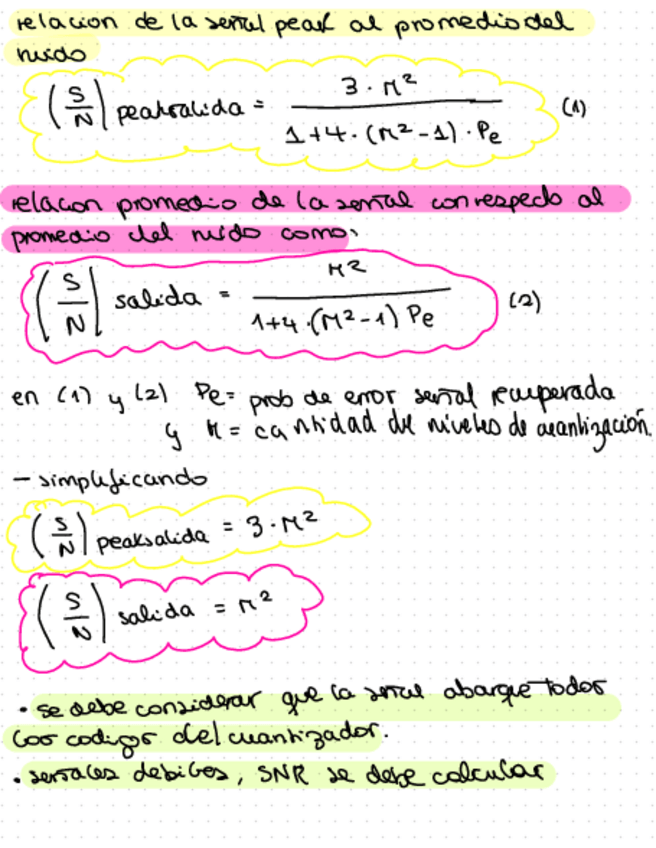 relacion de la señal peak al promedio del
ruido
(S/N) peaksalida = 3·M² / 1+4·(M²-1)·Pe (1)
relacion promedio de la señal con respecto al
promedio del ruido como:
(S/N) salida = M² / 1+4·(M²-1) Pe (2)
en (1) y (2) Pe = prob de error señal recuperada
y M = cantidad de niveles de cuantización.
- simplificando
(S/N) peaksalida = 3·M²
(S/N) salida = M²
• se debe considerar que la señal abarque todos
los codigos del cuantizador.
• señales debiles, SNR se debe calcular